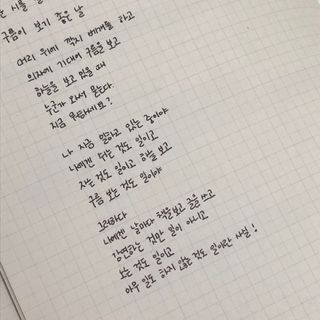 는 시를 쓸
구름이 보기 좋은 날
머리 위에 깍지 베개를 하고
의자에 기대어 구름을 보고
하늘을 보고 있을 때
누군가 와서 묻는다.
지금 뭐하세요?
나 지금 일하고 있는 중이야
나에겐 쉬는 것도 일이고
자는 것도 일이고 하늘 보고
구름 보는 것도 일이야
그러하다
나에겐 날마다 책을 보고 글을 쓰고
강연하는 것만 일이 아니고
노는 것도 일이고
아무 일도 하지 않는 것도 일이란 사실!